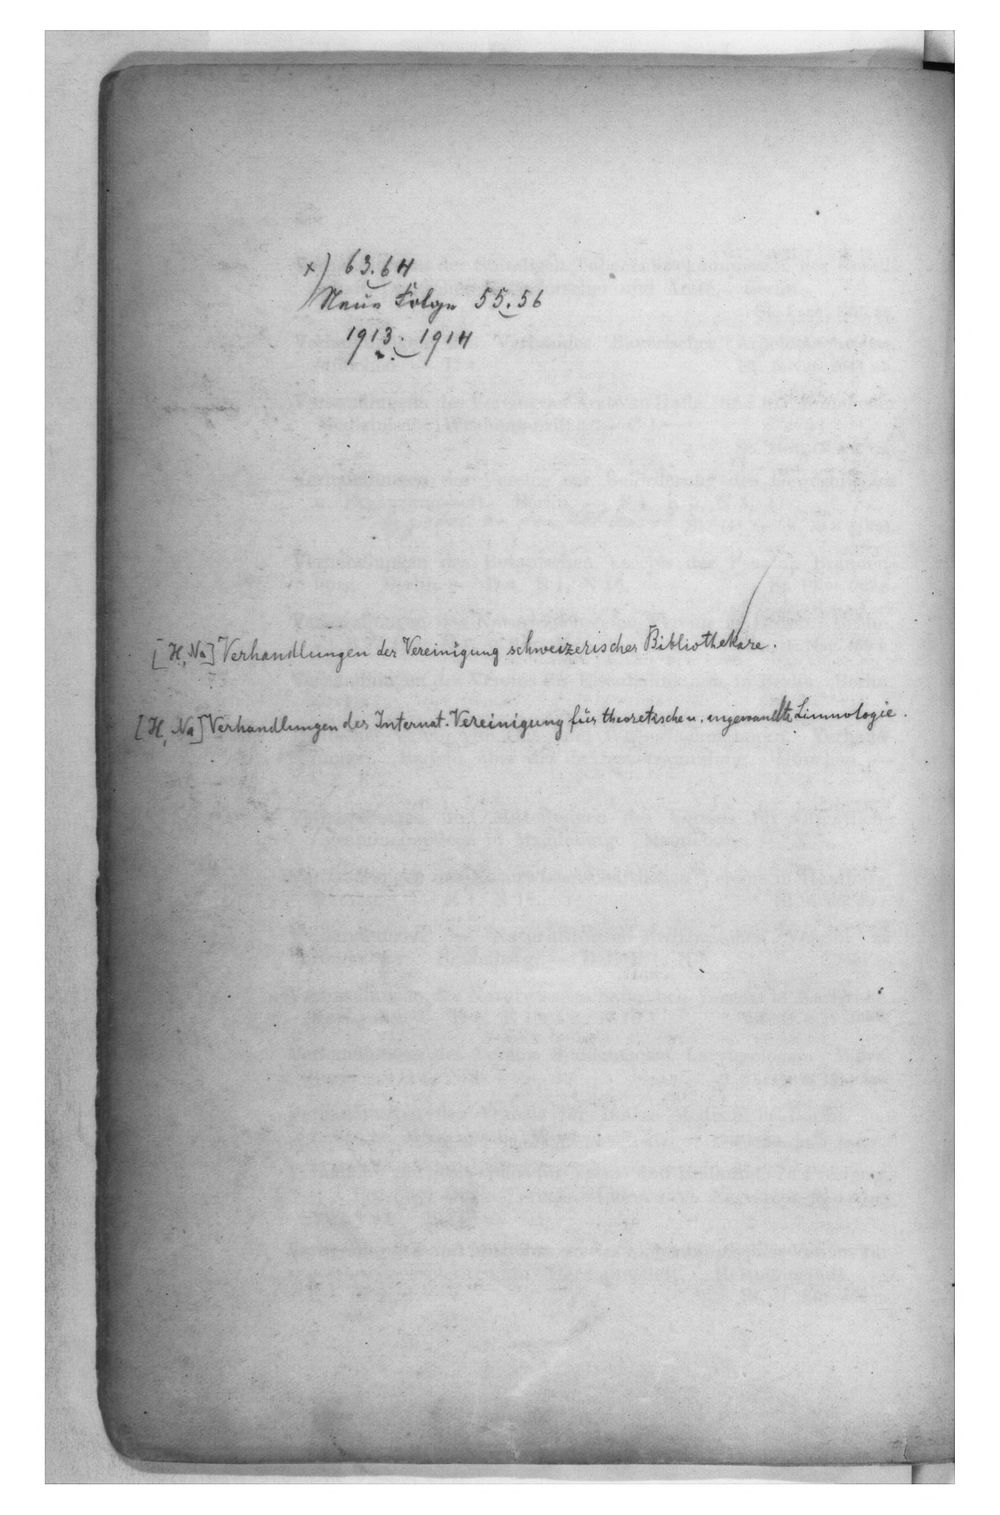 x) 63.64
Neue Folge 55.56
1913. 1914
[H, Na] Verhandlungen der Vereinigung schweizerischer Bibliothekare.
[H, Na] Verhandlungen der Internat. Vereinigung für theoretische u. angewandte Limnologie.